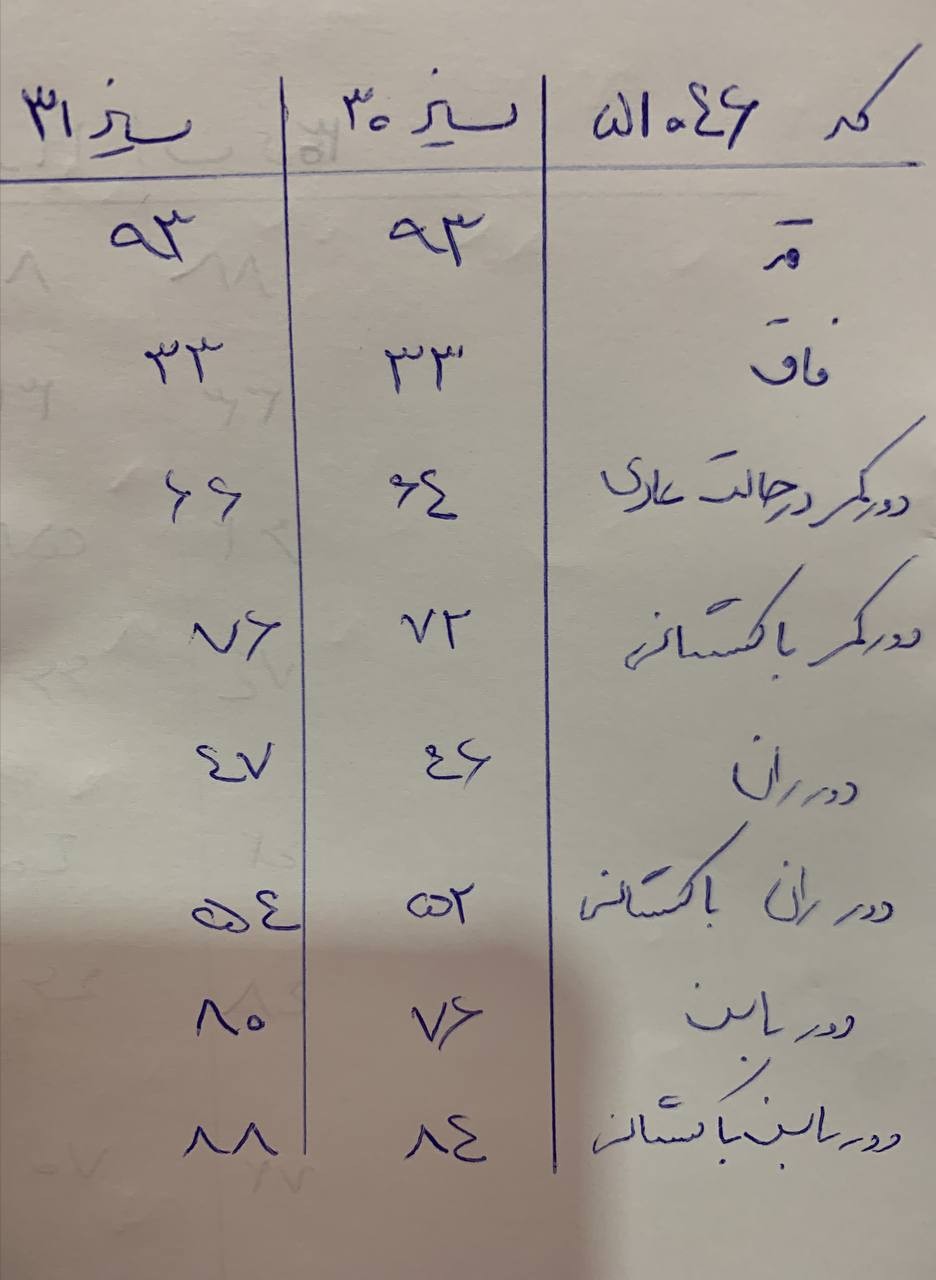 کد ۵۱۰۴۶ سایز ۳۰ سایز ۳۱
قد ۹۳ ۹۳
فاق ۳۳ ۳۳
دور کمر در حالت عادی ۶۴ ۶۶
دور کمر با کشسانی ۷۲ ۷۶
دور ران ۴۶ ۴۷
دور ران با کشسانی ۵۲ ۵۴
دور باسن ۷۶ ۸۰
دور باسن با کشسانی ۸۴ ۸۸